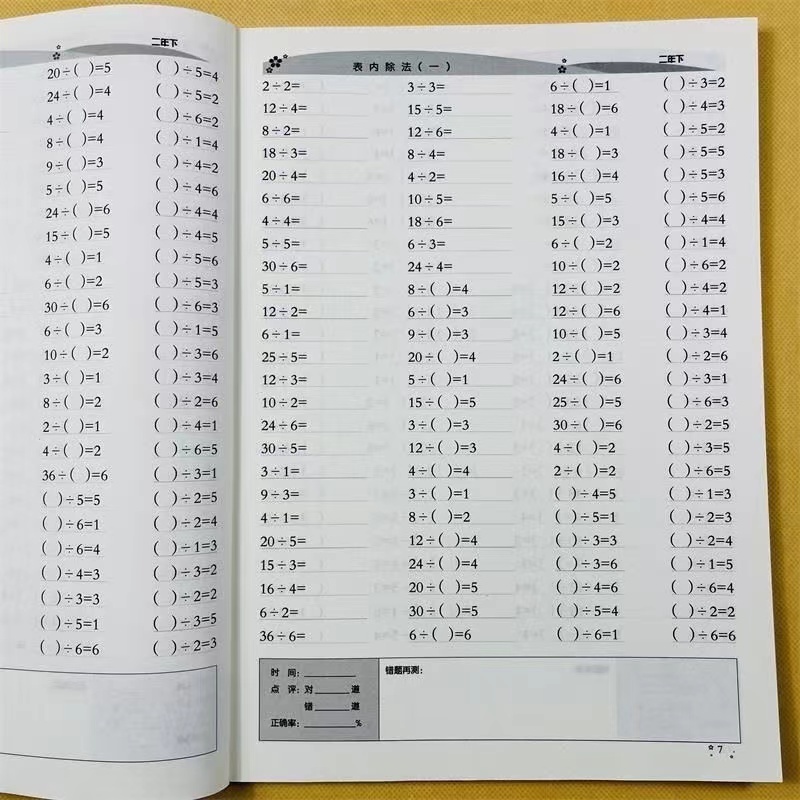 二年下
20÷( )=5 ( )÷5=4
24÷( )=4 ( )÷5=2
4÷( )=4 ( )÷6=2
8÷( )=4 ( )÷1=4
9÷( )=3 ( )÷4=2
5÷( )=5 ( )÷4=6
24÷( )=6 ( )÷4=4
15÷( )=5 ( )÷4=5
4÷( )=1 ( )÷5=6
6÷( )=2 ( )÷5=3
30÷( )=6 ( )÷6=3
6÷( )=3 ( )÷1=5
10÷( )=2 ( )÷3=6
3÷( )=1 ( )÷3=4
8÷( )=2 ( )÷2=6
2÷( )=1 ( )÷6=5
4÷( )=2 ( )÷3=1
36÷( )=6 ( )÷2=5
( )÷5=5 ( )÷2=4
( )÷6=1 ( )÷1=3
( )÷6=4 ( )÷3=2
( )÷4=3 ( )÷2=2
( )÷3=3 ( )÷3=5
( )÷5=1 ( )÷2=3
( )÷6=6
表内除法(一) 二年下
2÷2= 3÷3= 6÷( )=1 ( )÷3=2
12÷4= 15÷5= 18÷( )=6 ( )÷4=3
8÷2= 12÷6= 4÷( )=1 ( )÷5=2
18÷3= 8÷4= 18÷( )=3 ( )÷5=5
20÷4= 4÷2= 16÷( )=4 ( )÷5=3
6÷6= 10÷5= 5÷( )=5 ( )÷5=6
4÷4= 18÷6= 15÷( )=3 ( )÷4=4
5÷5= 6÷3= 6÷( )=2 ( )÷1=4
30÷6= 24÷4= 10÷( )=2 ( )÷6=2
5÷1= 8÷( )=4 12÷( )=2 ( )÷4=2
12÷2= 6÷( )=3 12÷( )=6 ( )÷4=1
6÷1= 9÷( )=3 10÷( )=5 ( )÷3=4
25÷5= 20÷( )=4 2÷( )=1 ( )÷2=6
12÷3= 5÷( )=1 24÷( )=6 ( )÷3=1
10÷2= 15÷( )=5 25÷( )=5 ( )÷6=3
24÷6= 3÷( )=3 30÷( )=6 ( )÷2=5
30÷5= 12÷( )=3 4÷( )=2 ( )÷3=5
3÷1= 4÷( )=4 2÷( )=2 ( )÷6=5
9÷3= 3÷( )=1 ( )÷4=5 ( )÷1=3
4÷1= 8÷( )=2 ( )÷5=1 ( )÷2=3
20÷5= 12÷( )=4 ( )÷3=3 ( )÷2=4
15÷3= 24÷( )=4 ( )÷3=6 ( )÷1=5
16÷4= 20÷( )=5 ( )÷4=6 ( )÷6=4
6÷2= 30÷( )=5 ( )÷5=4 ( )÷2=2
36÷6= 6÷( )=6 ( )÷6=1 ( )÷6=6
时 间:
点 评:对 道
错 道
正确率: %
错题再测:
7